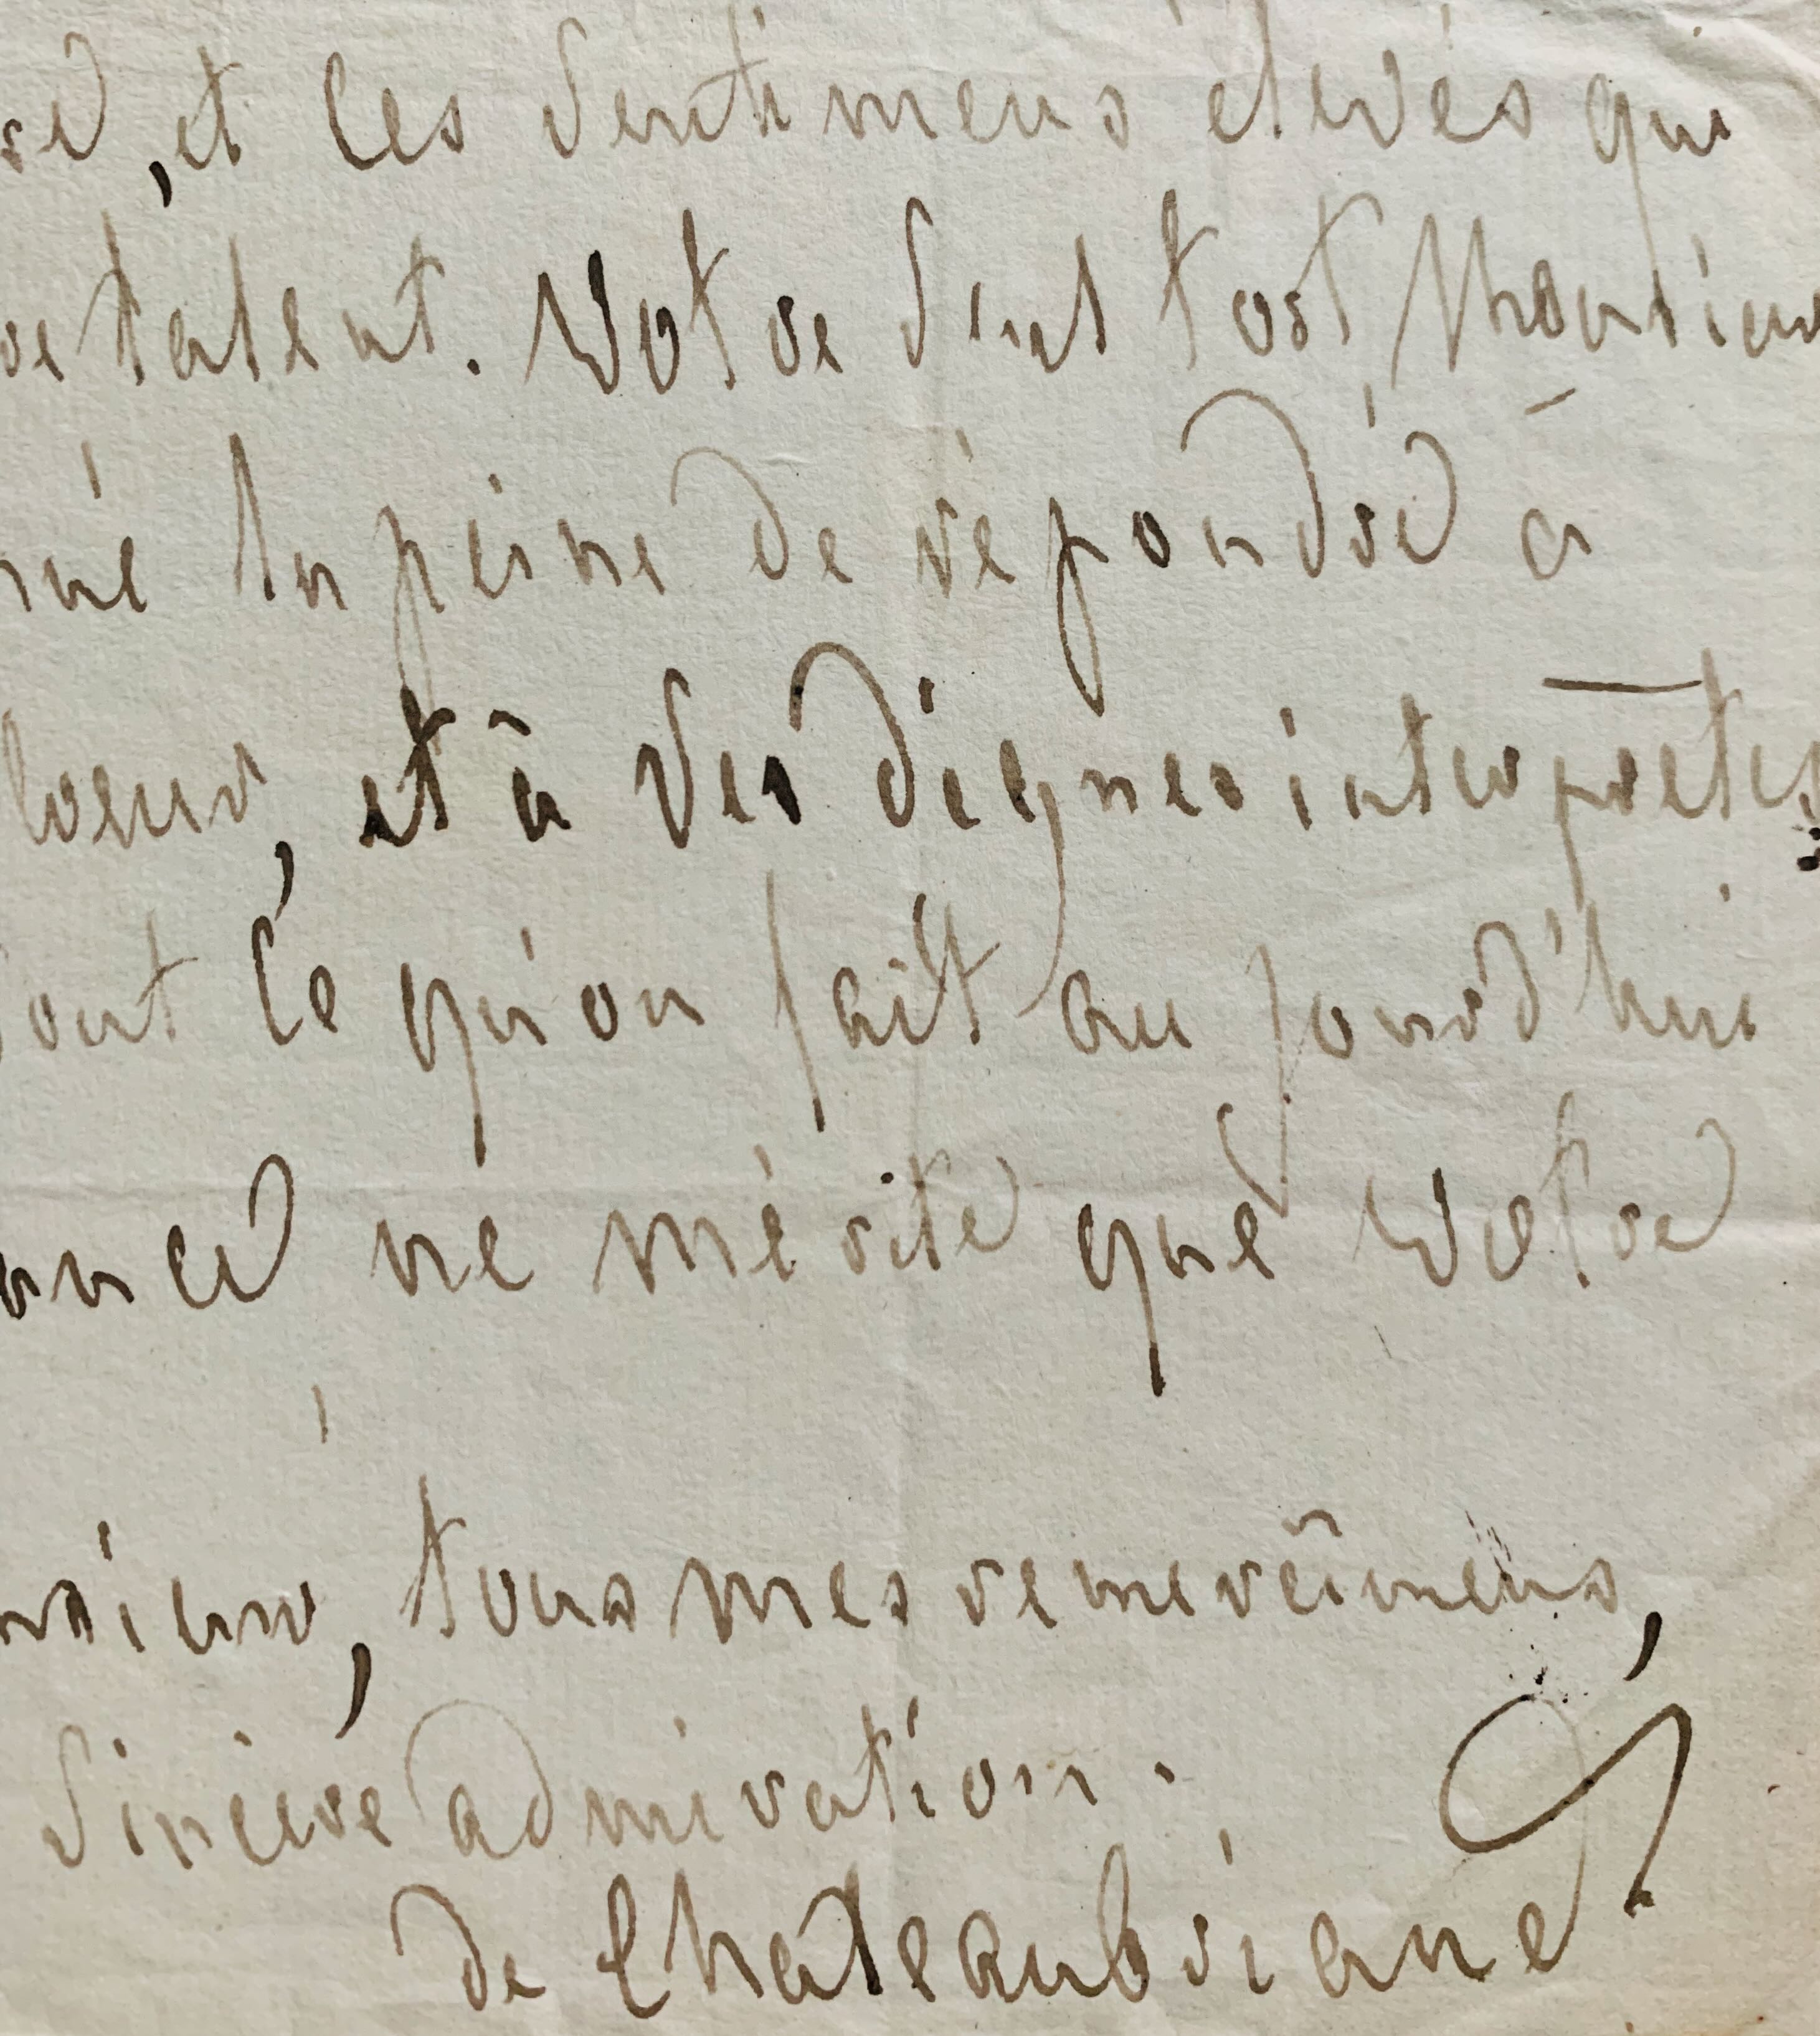 et les sentimens élevés qui
talent. Votre seul tort, Monsieur
la peine de répondre à
et à ses dignes interprètes
ce qu'on fait aujourd'hui
ne mérite que votre
tous mes remercîmens,
sincère admiration.
de Chateaubriand